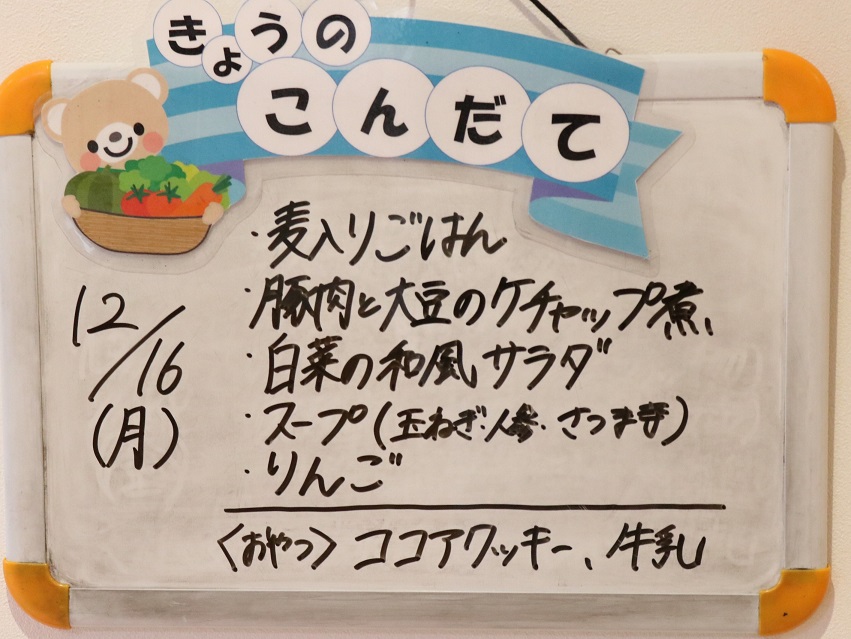 きょうの
こんだて
12/16
(月)
・麦入りごはん
・豚肉と大豆のケチャップ煮
・白菜の和風サラダ
・スープ(玉ねぎ・人参・さつま芋)
・りんご
〈おやつ〉ココアクッキー、牛乳